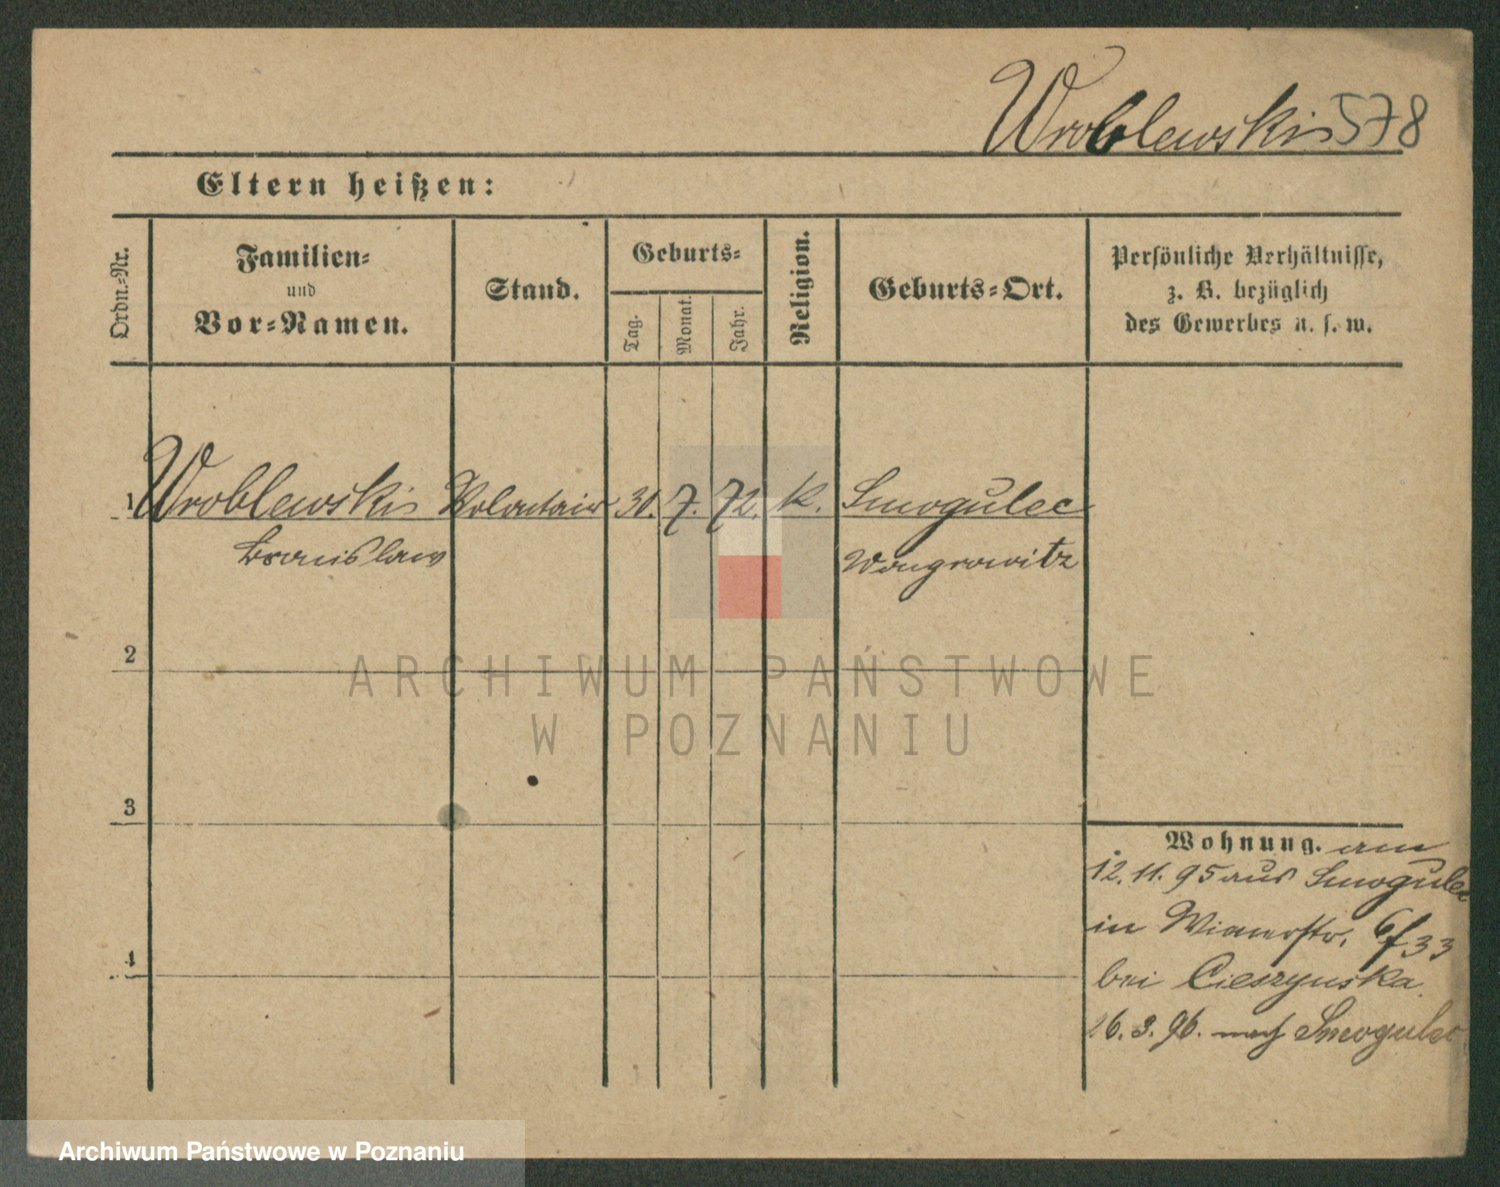 Wroblewski 578
Eltern heißen:
Ordn.-Nr.
Familien-
und
Vor-Namen.
Stand.
Geburts-
Tag.
Monat.
Jahr.
Religion.
Geburts-Ort.
Persönliche Verhältnisse,
z. B. bezüglich
des Gewerbes u. s. w.
1 Wroblewski Volontair 30. 7. 72. k. Smogulec
Bronislaw Wongrowitz
2
ARCHIWUM PAŃSTWOWE
W POZNANIU
3
Wohnung. am
12. 11. 95 aus Smogulec
in Wienerstr. 6 f 33
4
bei Cieszynska
26. 3. 96. nach Smogulec
Archiwum Państwowe w Poznaniu